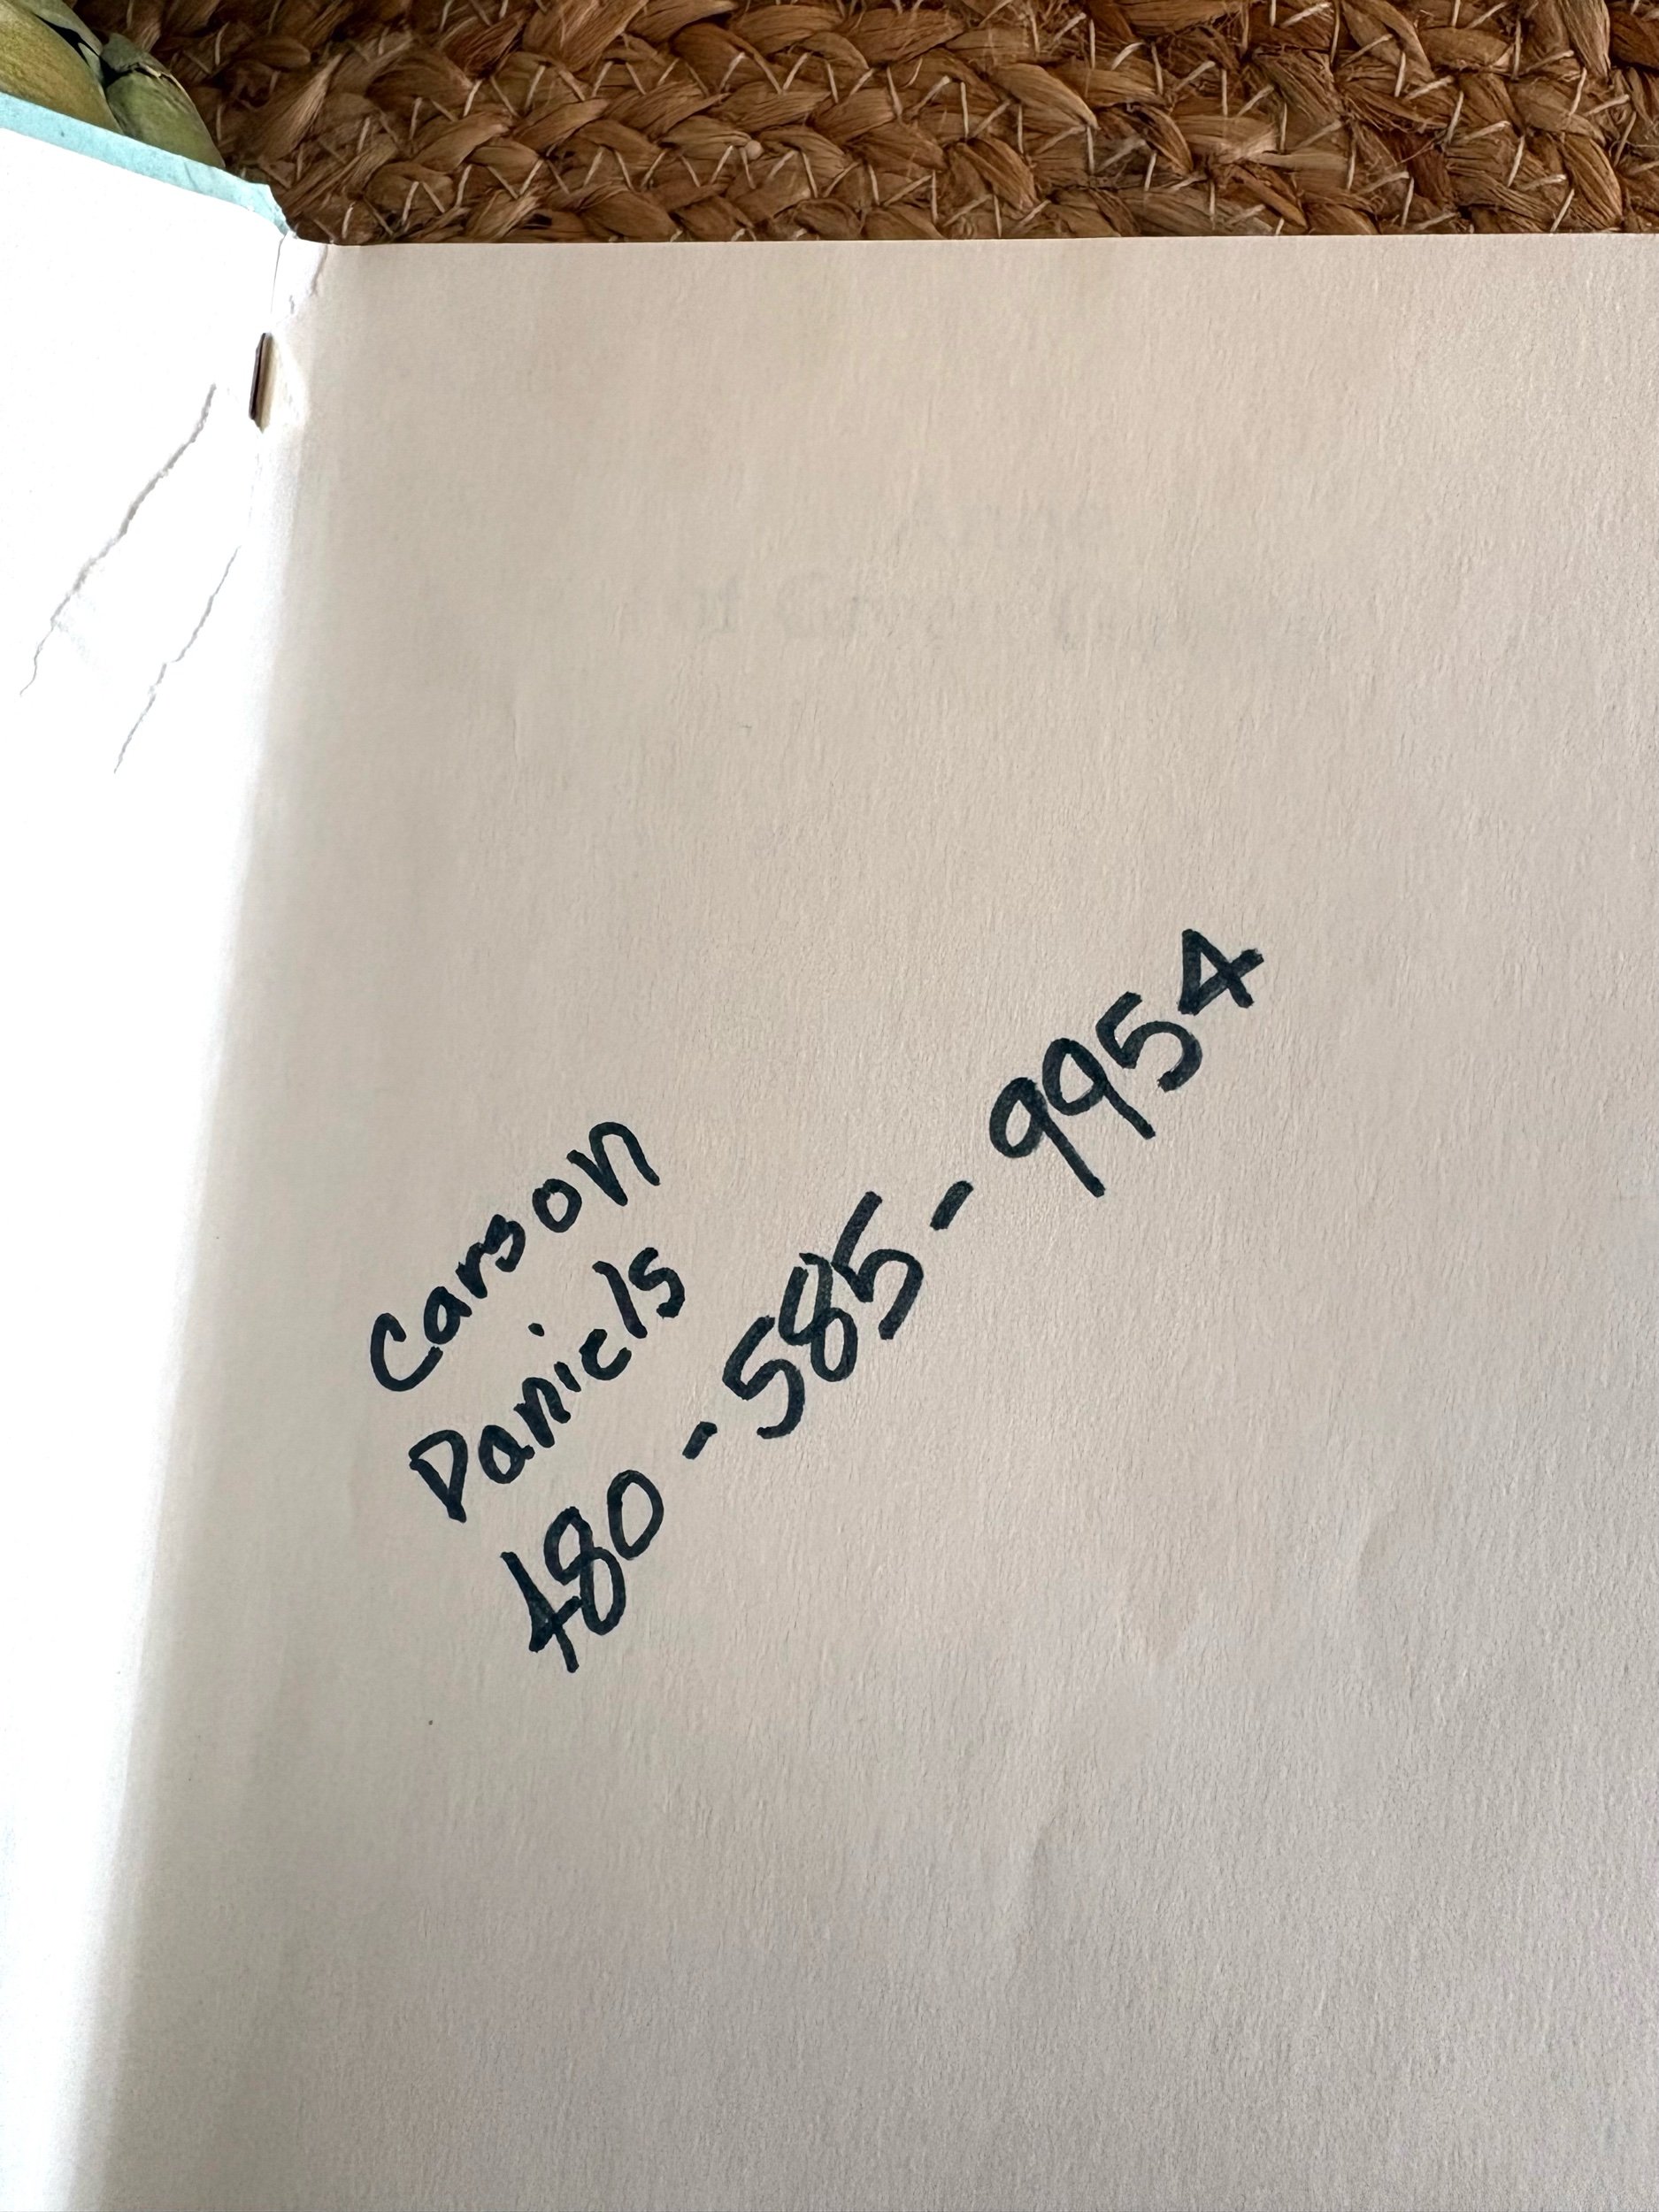 Carson
Daniels
480-585-9954